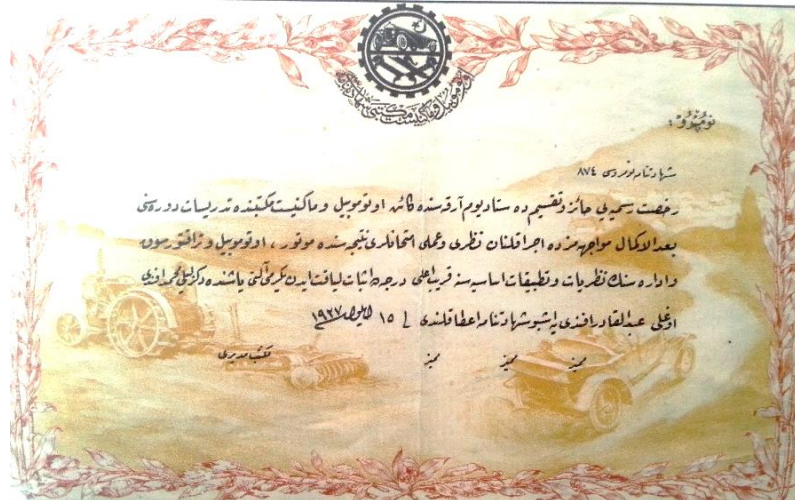 اوتوموبیل و ماکنیست مکتبی شهادتنامه‌سی
نومرو :
شهادتنامه نومروسی ٨٧٤
رخصت رسمیه‌یی حائز و تقسیم ده ستادیوم آرقه‌سنده کائن اوتوموبیل و ماکنیست مکتبنده تدریسات دوره‌سنی
بعدالاکمال مواجهه‌مزده اجرا قلنان نظری و عملی امتحانلری نتیجه‌سنده موتور ، اوتوموبیل و تراقتور سوق
و اداره سنك نظریات و تطبیقات اساسیه‌سنه قریب اعلی درجه‌ده اثبات لیاقت ایدن یکرمی آلتی یاشنده دکزلیلی محمد افندی
اوغلی عبدالقادر افندی یه اشبو شهادتنامه اعطا قلندی فی ١٥ ١٩٢٧
ممیز ممیز ممیز مکتب مدیری